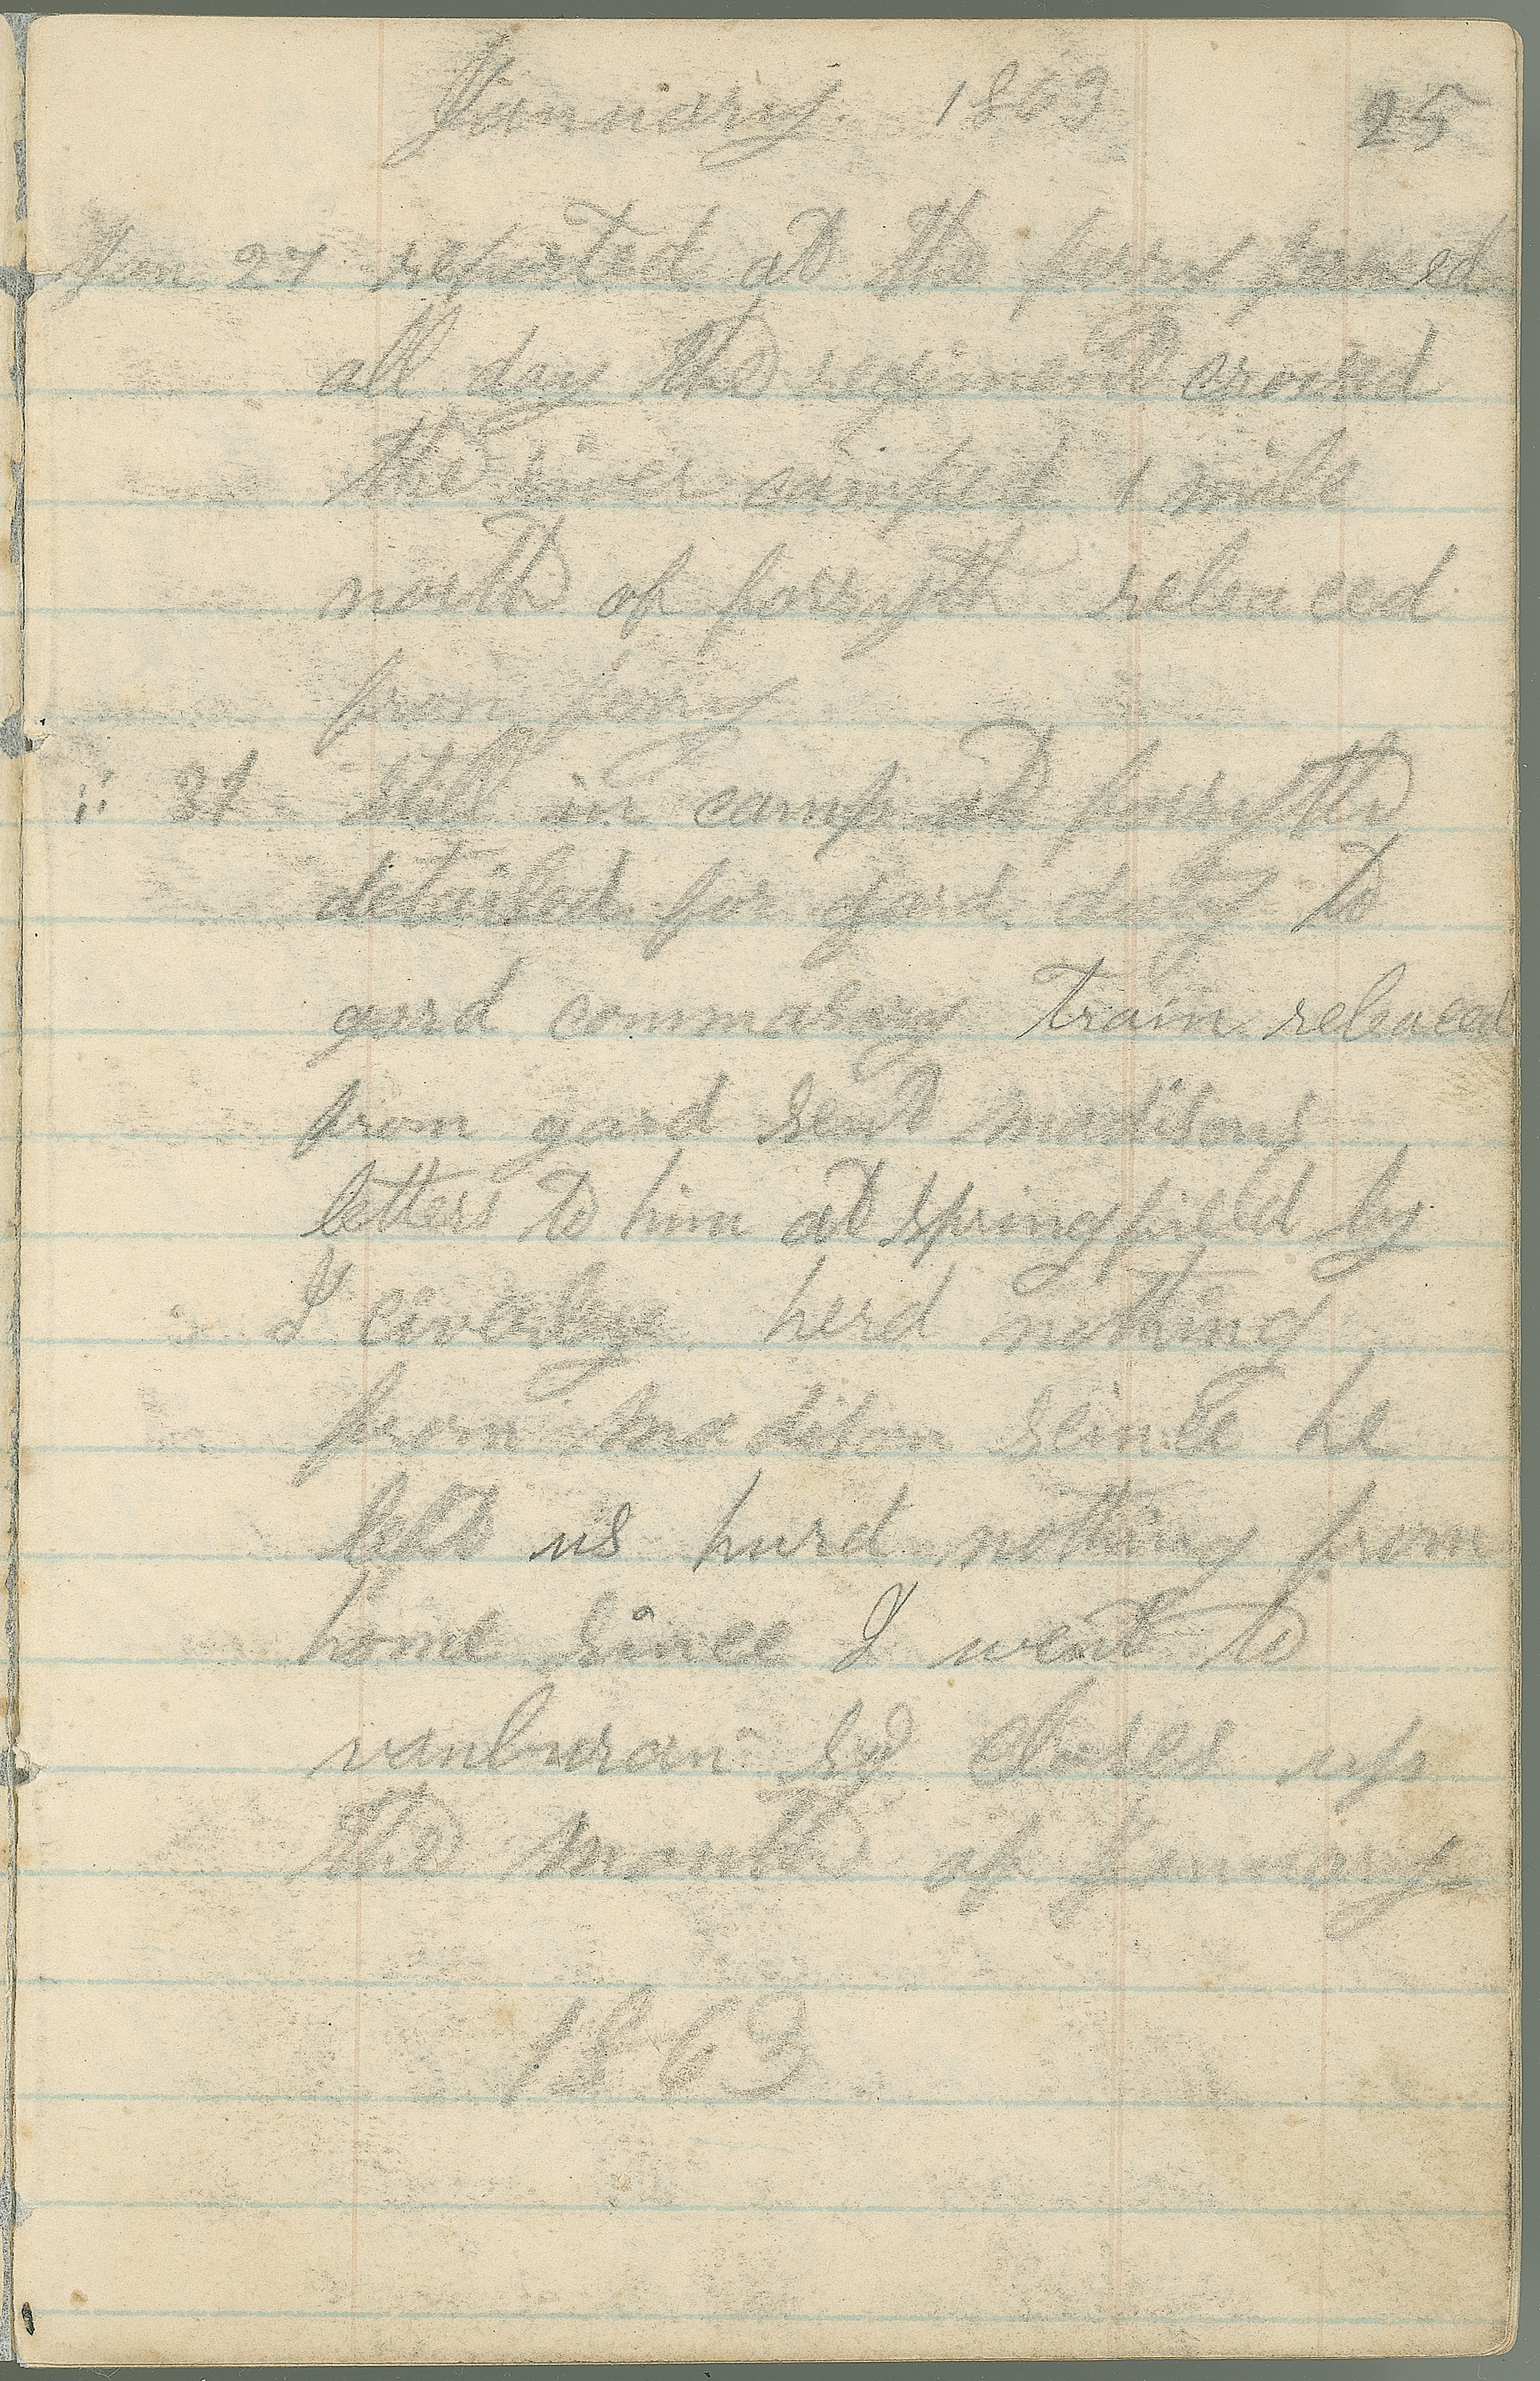 January. 1863 25
Jan 27 reported at the fery feried
all day the regiment crosed
the river camped 1 mile
north of forsyth releaced
from fery
" 31 still in camp at forsyth
detailed for gard duty to
gard commasary train releaced
from gard sent madisons
letters to him at springfield by
J herd nothing
from madison seince he
left us hurd nothing from
home since I went to
vanburan so closes up
the month of January
1863